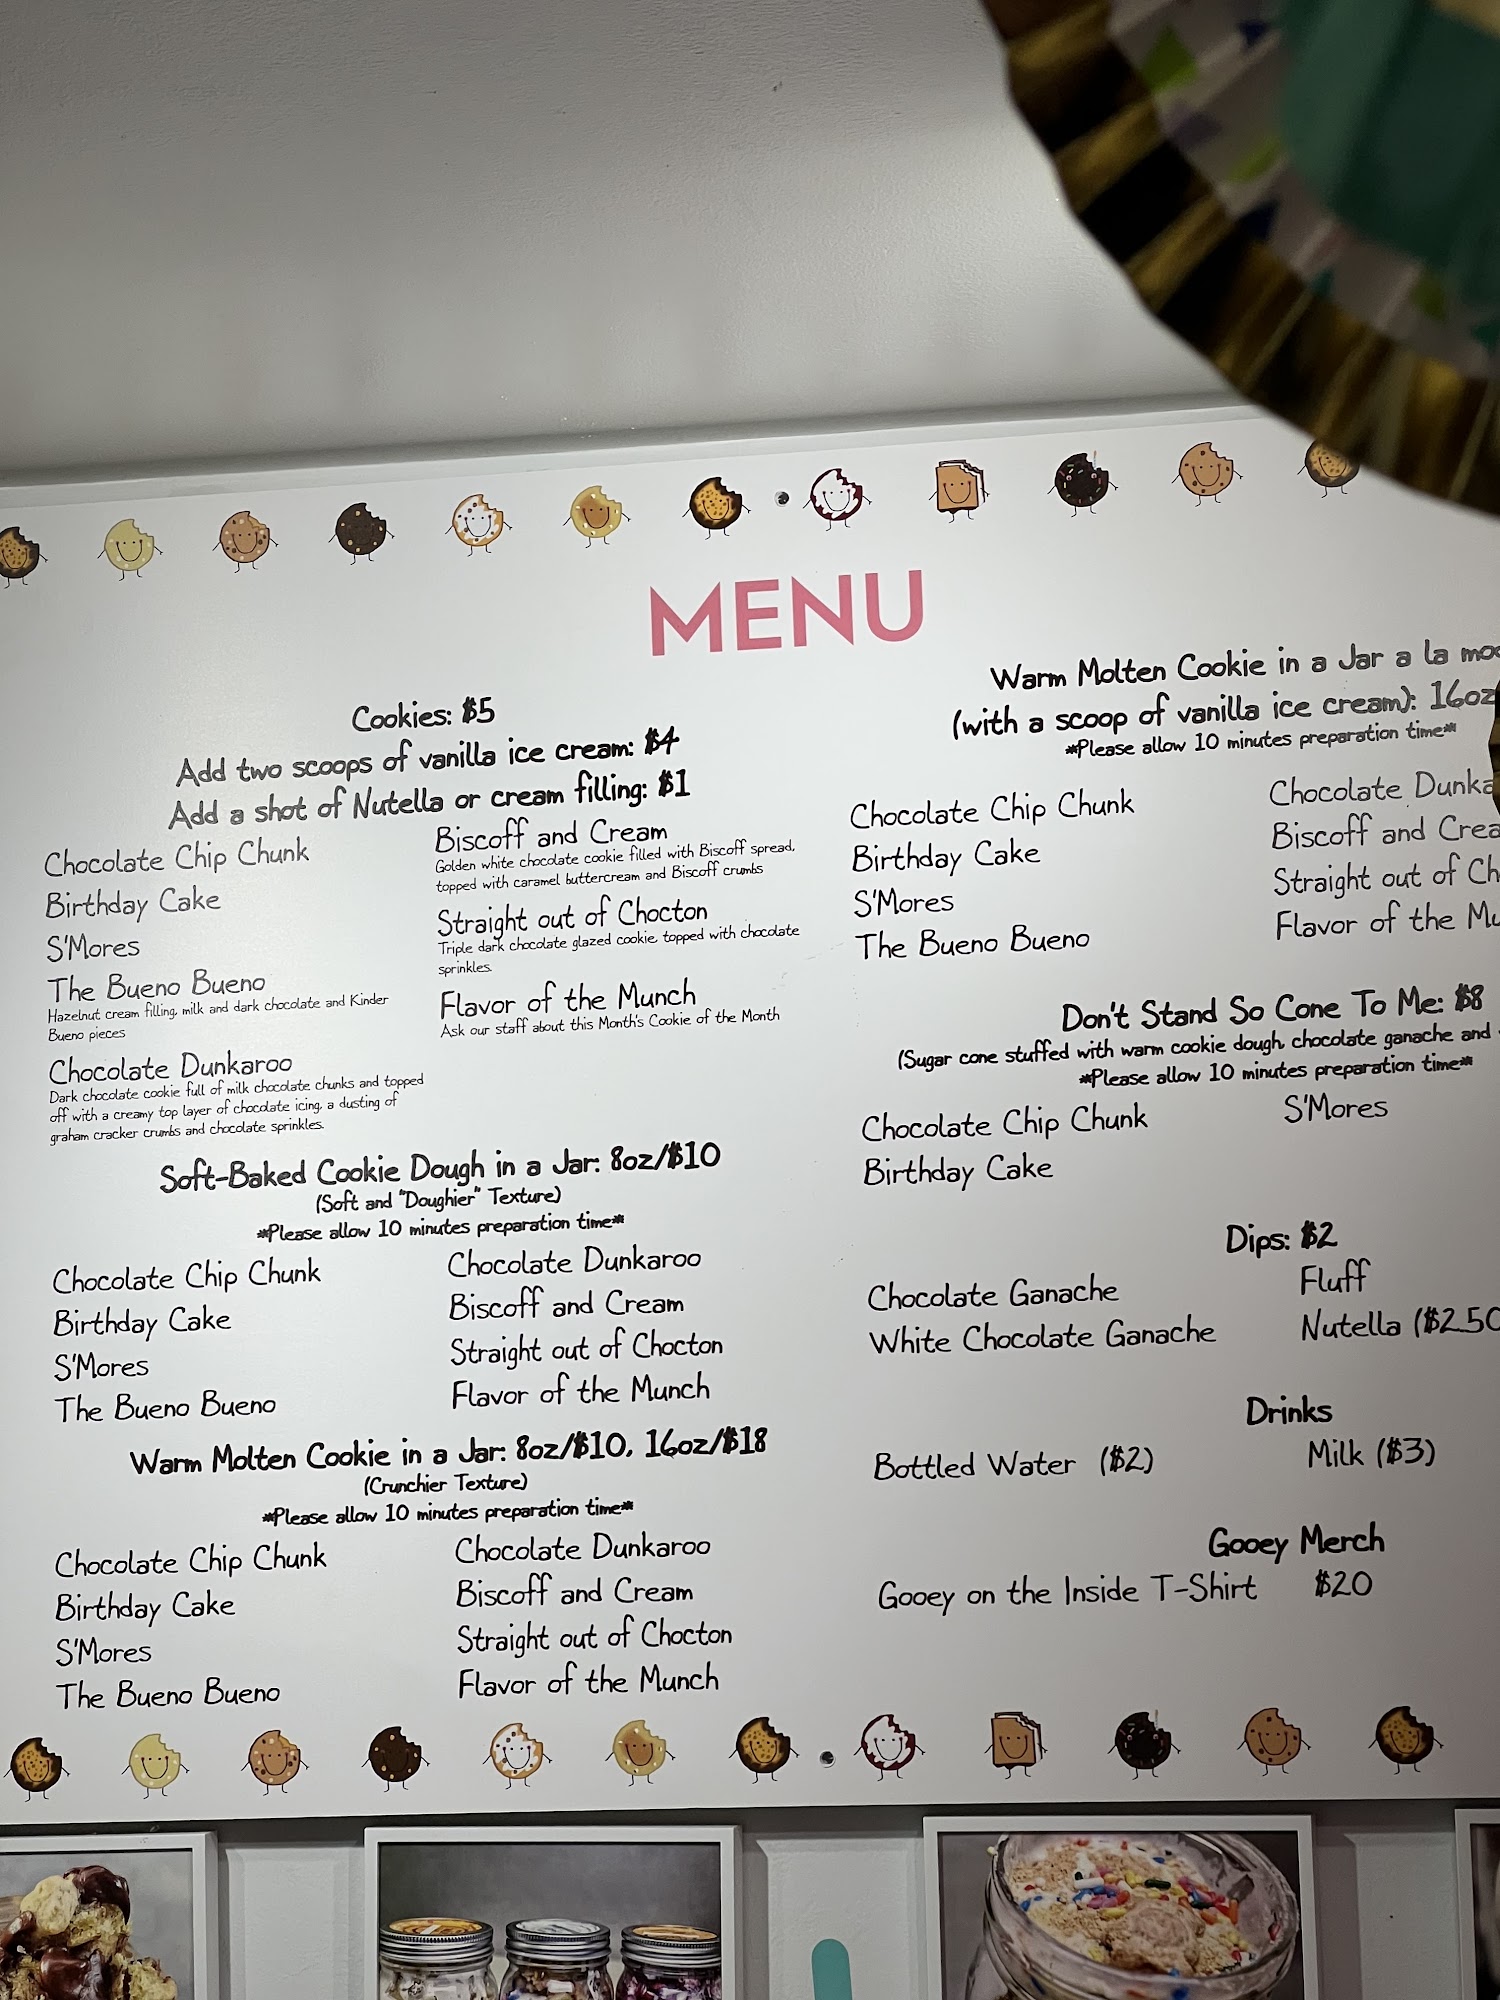 MENU
Cookies: $5
Add two scoops of vanilla ice cream: $4
Add a shot of Nutella or cream filling: $1
Chocolate Chip Chunk
Birthday Cake
S'Mores
The Bueno Bueno
Hazelnut cream filling, milk and dark chocolate and Kinder
Bueno pieces
Chocolate Dunkaroo
Dark chocolate cookie full of milk chocolate chunks and topped
off with a creamy top layer of chocolate icing, a dusting of
graham cracker crumbs and chocolate sprinkles.
Biscoff and Cream
Golden white chocolate cookie filled with Biscoff spread,
topped with caramel buttercream and Biscoff crumbs
Straight out of Chocton
Triple dark chocolate glazed cookie, topped with chocolate
sprinkles.
Flavor of the Munch
Ask our staff about this Month's Cookie of the Month
Soft-Baked Cookie Dough in a Jar: 8oz/$10
(Soft and "Doughier" Texture)
*Please allow 10 minutes preparation time*
Chocolate Chip Chunk
Birthday Cake
S'Mores
The Bueno Bueno
Chocolate Dunkaroo
Biscoff and Cream
Straight out of Chocton
Flavor of the Munch
Warm Molten Cookie in a Jar: 8oz/$10, 16oz/$18
(Crunchier Texture)
*Please allow 10 minutes preparation time*
Chocolate Chip Chunk
Birthday Cake
S'Mores
The Bueno Bueno
Chocolate Dunkaroo
Biscoff and Cream
Straight out of Chocton
Flavor of the Munch
Warm Molten Cookie in a Jar a la
(with a scoop of vanilla ice cream): 16oz
*Please allow 10 minutes preparation time*
Chocolate Chip Chunk
Birthday Cake
S'Mores
The Bueno Bueno
Chocolate
Biscoff and
Straight out of
Flavor of the
Don't Stand So Cone To Me: $8
(Sugar cone stuffed with warm cookie dough, chocolate ganache and
*Please allow 10 minutes preparation time*
Chocolate Chip Chunk
Birthday Cake
S'Mores
Dips: $2
Chocolate Ganache
White Chocolate Ganache
Fluff
Nutella ($2.50
Drinks
Bottled Water ($2)
Milk ($3)
Gooey Merch
Gooey on the Inside T-Shirt $20